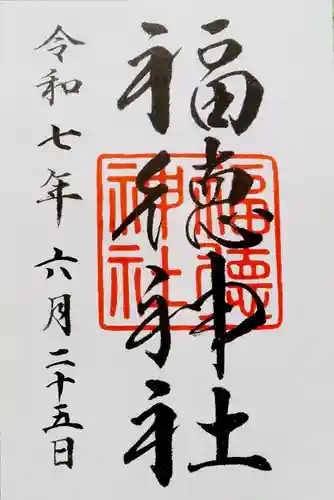 福徳神社
令和七年六月二十五日
福徳
神社